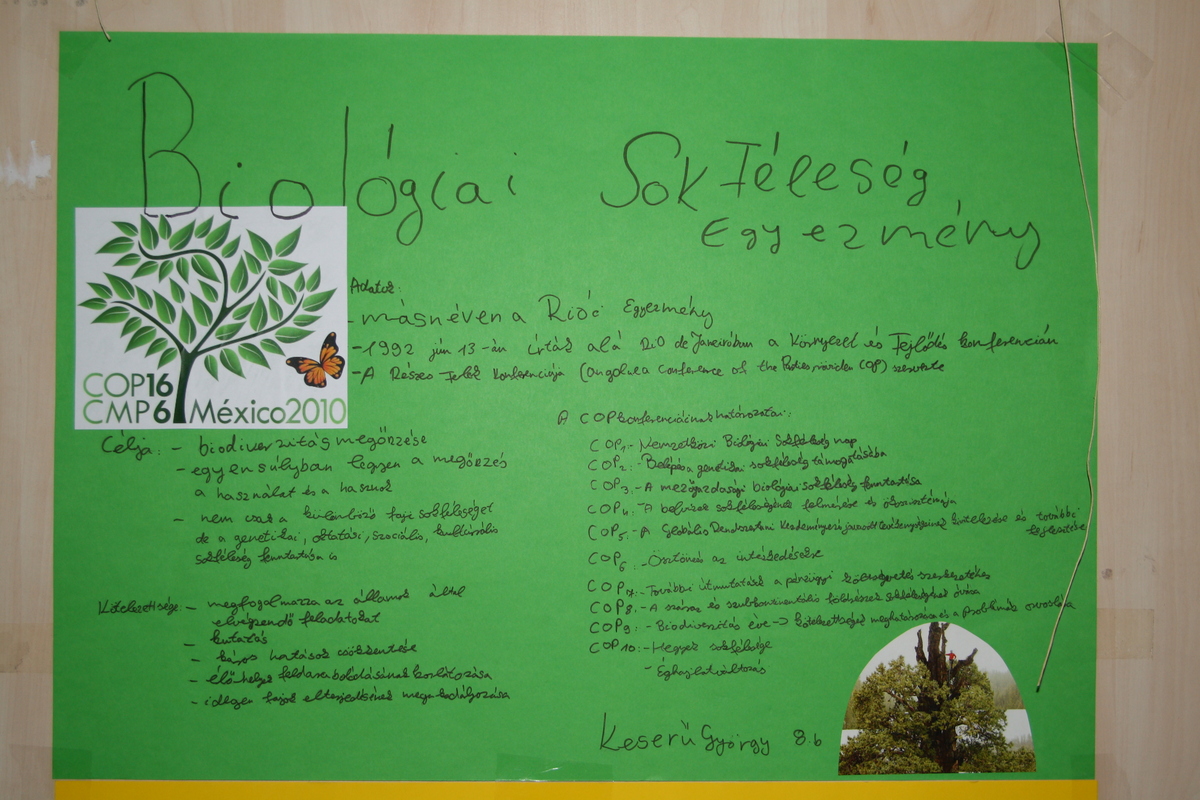 Biológiai Sok Féleség
Egyezmény
COP16
CMP6 México2010
Adatok:
- másnéven a Riói Egyezmény
- 1992 jún 13-án írták alá RiO de Janeiróban a Környezet és Fejlődés konferencián
- A Részes Felek Konferenciája (angolul a Conference of the Parties röviden COP) szervezte
Célja: - biodiverzitás megőrzése
- egyensúlyban legyen a megőrzés
a használat és a haszuok
- nem csak a különböző fajú sokféleséget
de a genetikai, oktatási, szociális, kulturális
sokféleség fenntartása is
Kötelezettsége - megfogalmazza az államok által
elvégzendő feladatokat
- kutatás
- káros hatások csökkentése
- élőhelyek feldarabolódásának korlátozása
- idegen fajok elterjedésének megakadályozása
A COP konferenciáinak határozatai:
COP1 - Nemzetközi Biológiai Sokféleség nap
COP2: - Belépés a genetikai sokféleség támogatásába
COP3 - A mezőgazdasági biológiai sokféleség fenntartása
COP4: A belvizek sokféleségének felmérése és ökoszisztémája
COP5 - A Globális kiértékelése és további
fejlesztése
COP6: - Ösztönzés az intézkedésekre
COP7: - További útmutatások a pénzügyi költségvetés szerkezetéhez
COP8: - A száraz és földrészek sokféleségének óvása
COP9: - Biodiverzitás éve -> kötelezettségek meghatározása és a problémák orvoslása
COP10: - Hegyek sokfélesége
- Éghajlatváltozás
Keserű György 8.b